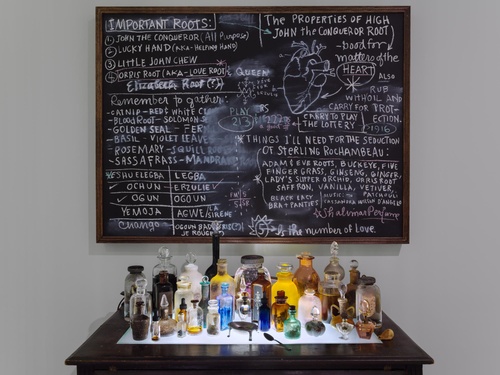 IMPORTANT ROOTS:
① JOHN THE CONQUEROR (All Purpose)
② LUCKY HAND (AKA-HELPING HAND)
③ LITTLE JOHN CHEW
④ ORRIS ROOT (AKA-LOVE ROOT)
Elizabeth Root (?)
Remember to gather:
CATNIP - RED & WHITE
BLOODROOT - SOLOMON'S
GOLDEN SEAL - FERN
BASIL - VIOLET LEAVES
ROSEMARY - SQUILL ROOT
SASSAFRASS - MANDRAKE
ESHU ELEGBA LEGBA
OCHUN ERZULIE
OGUN OGOUN
YEMOJA AGWE/LA SIRENE
CHANGO OGOUN
JE ROUGE
The PROPERTIES OF HIGH
JOHN the CONQUEROR ROOT
-Good for
matters of the
HEART
ALSO
RUB
WITH OIL AND
CARRY FOR PROT-
ECTION.
QUEEN
PLAY
213
CARRY TO PLAY
THE LOTTERY
1916
* THINGS I'LL NEED FOR THE SEDUCTION
OF STERLING ROCHAMBEAU:
ADAM & EVE ROOTS, BUCKEYE, FIVE
FINGER GRASS, GINSENG, GINGER,
LADY'S SLIPPER ORCHID, ORRIS ROOT
SAFFRON, VANILLA, VETIVER,
PATCHOULI
BLACK LACY
BRA + PANTIES
MUSIC:
CASSANDRA WILSON D'ANGELO
☆ Shalimar Perfume
5 is the number of LOVE.